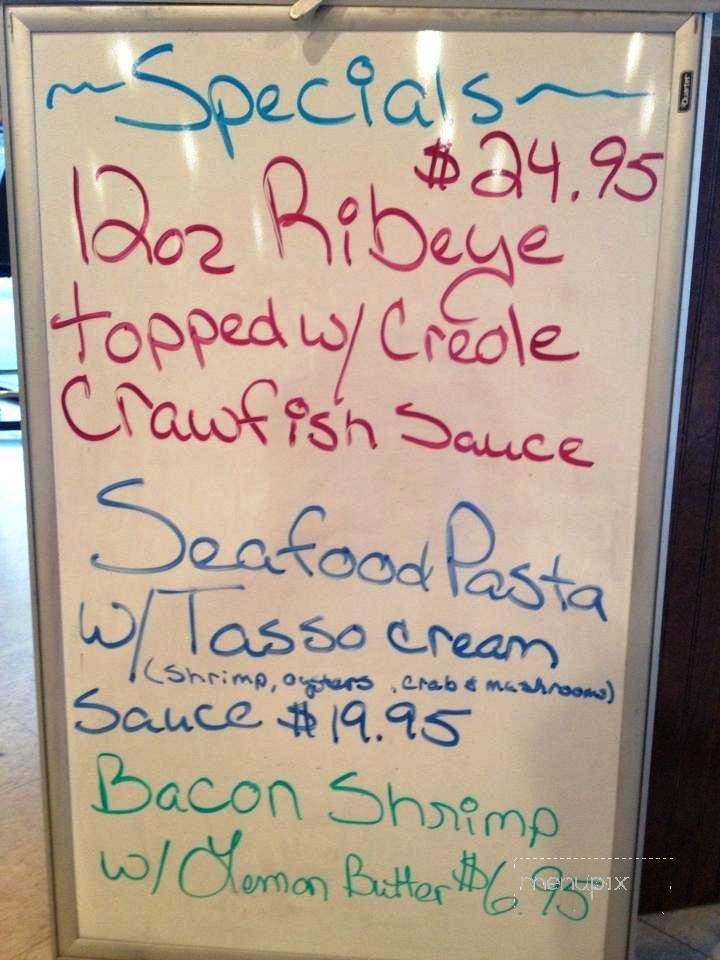 ~Specials~
$24.95
12oz Ribeye
topped w/ Creole
Crawfish Sauce
Seafood Pasta
w/ Tasso cream
(shrimp, oysters, crab & mushrooms)
Sauce $19.95
Bacon Shrimp
w/ Lemon Butter $6.95
menupix
Quartet